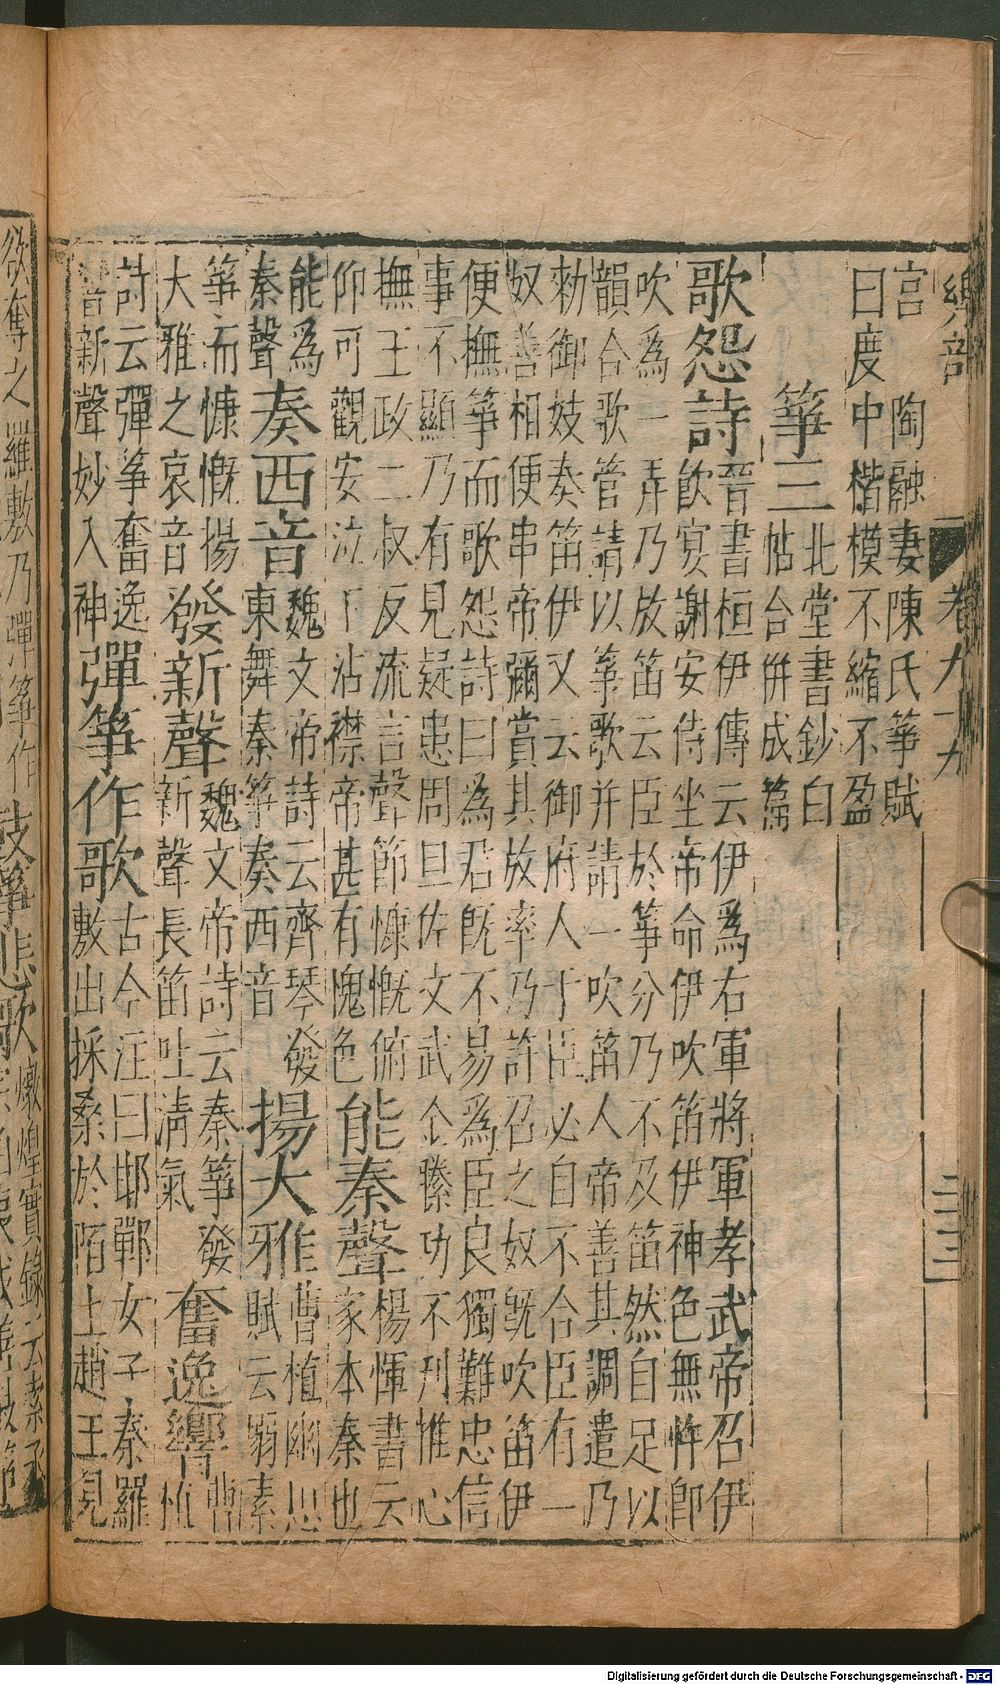 樂部　卷九十九
宮　陶融妻陳氏箏賦
曰度中楷模不縮不盈
箏三　北堂書鈔白
帖合併成篇
歌怨詩　晉書桓伊傳云伊為右軍將軍孝武帝召伊
飲宴謝安侍坐帝命伊吹笛伊神色無忤即
吹為一弄乃放笛云臣於箏分乃不及笛然自足以
韻合歌管請以箏歌并請一吹笛人帝善其調遣乃
勑御妓奏笛伊又云御府人于臣必自不合臣有一
奴善相便串帝彌賞其放率乃許召之奴既吹笛伊
便撫箏而歌怨詩曰為君既不易為臣良獨難忠信
事不顯乃有見疑患周旦佐文武金縢功不刊推心
撫王政二叔反流言聲節慷慨俯
仰可觀安泣下沾襟帝甚有愧色
能秦聲　楊惲書云
家本秦也
能為
秦聲
奏西音　魏文帝詩云齊琴發
東舞秦箏奏西音
揚大雅　曹植幽思
賦云弱素
箏而慷慨揚
大雅之哀音
發新聲　魏文帝詩云秦箏發
新聲長笛吐清氣
奮逸響　曹
植
詩云彈箏奮逸
音新聲妙入神
彈箏作歌　古今注曰邯鄲女子秦羅
敷出採桑於陌上趙王見
欲奪之羅敷乃彈箏作
鼓箏悲歌　燉煌實錄云索丞
Digitalisierung gefördert durch die Deutsche Forschungsgemeinschaft - DFG